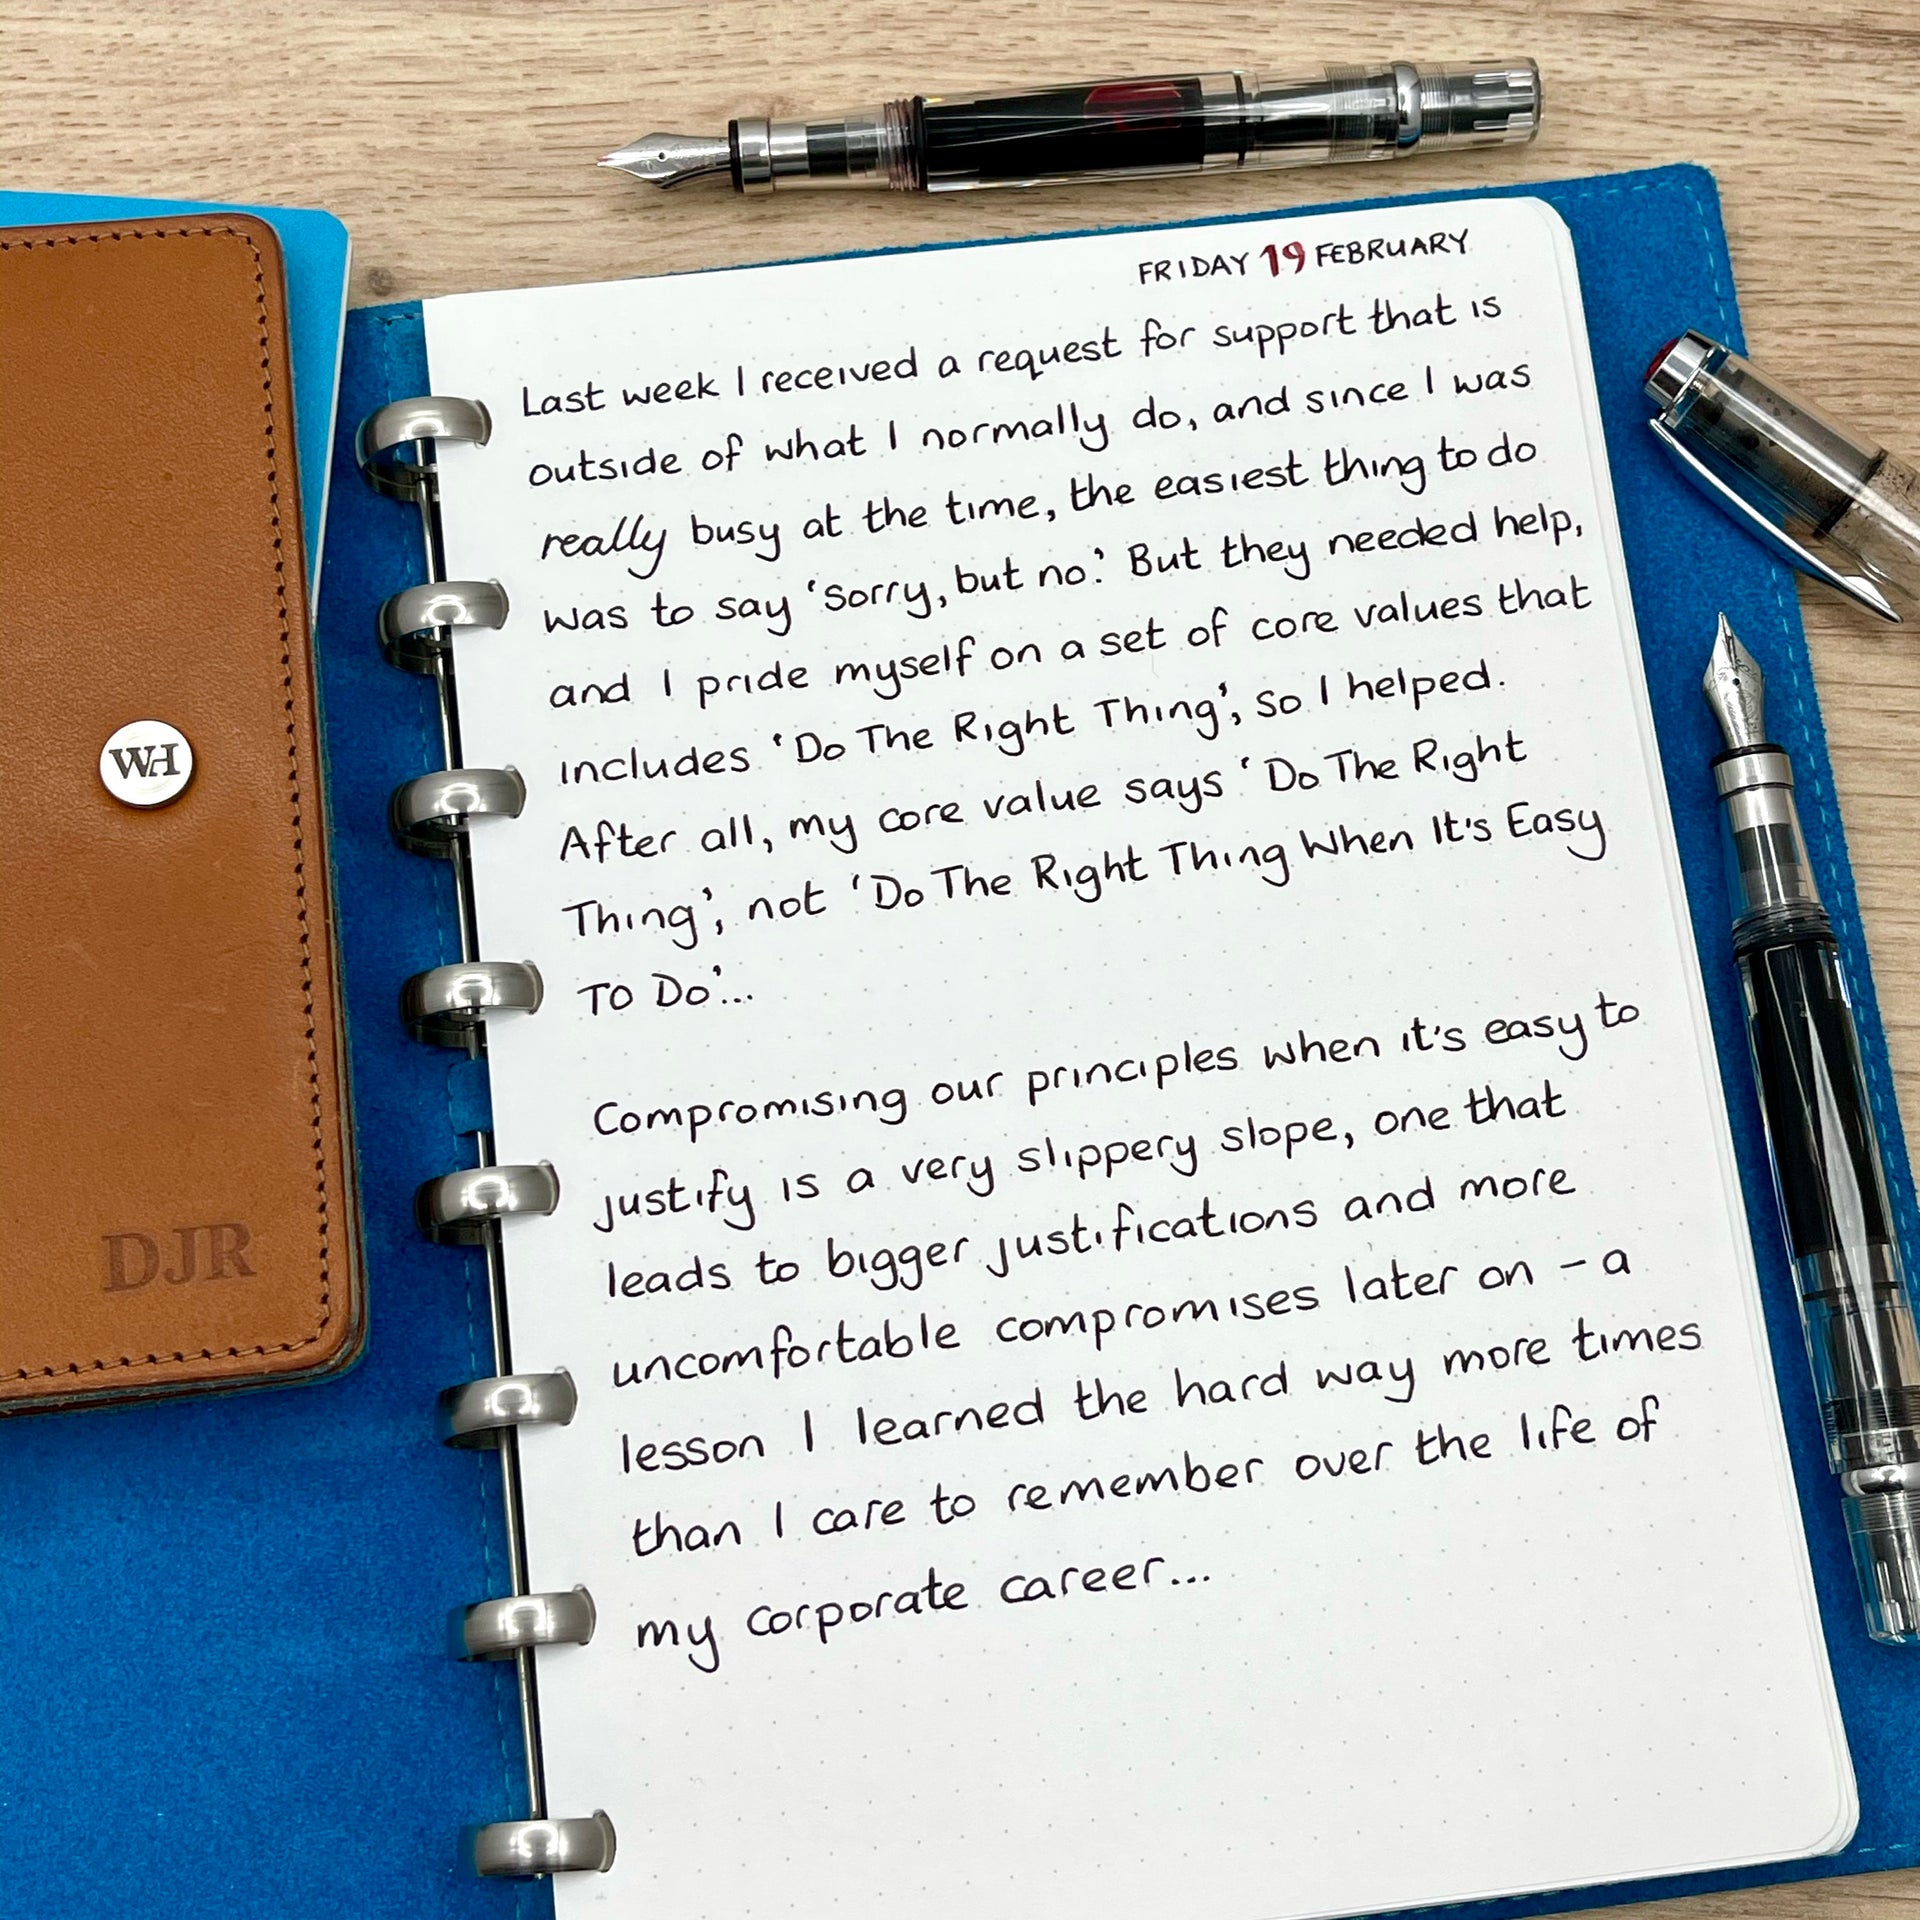 FRIDAY 19 FEBRUARY
Last week I received a request for support that is
outside of what I normally do, and since I was
really busy at the time, the easiest thing to do
was to say ‘Sorry, but no.’ But they needed help,
and I pride myself on a set of core values that
includes ‘Do The Right Thing’, so I helped.
After all, my core value says ‘Do The Right
Thing’, not ‘Do The Right Thing When It's Easy
To Do’...
Compromising our principles when it's easy to
justify is a very slippery slope, one that
leads to bigger justifications and more
uncomfortable compromises later on – a
lesson I learned the hard way more times
than I care to remember over the life of
my corporate career...
WH
DJR